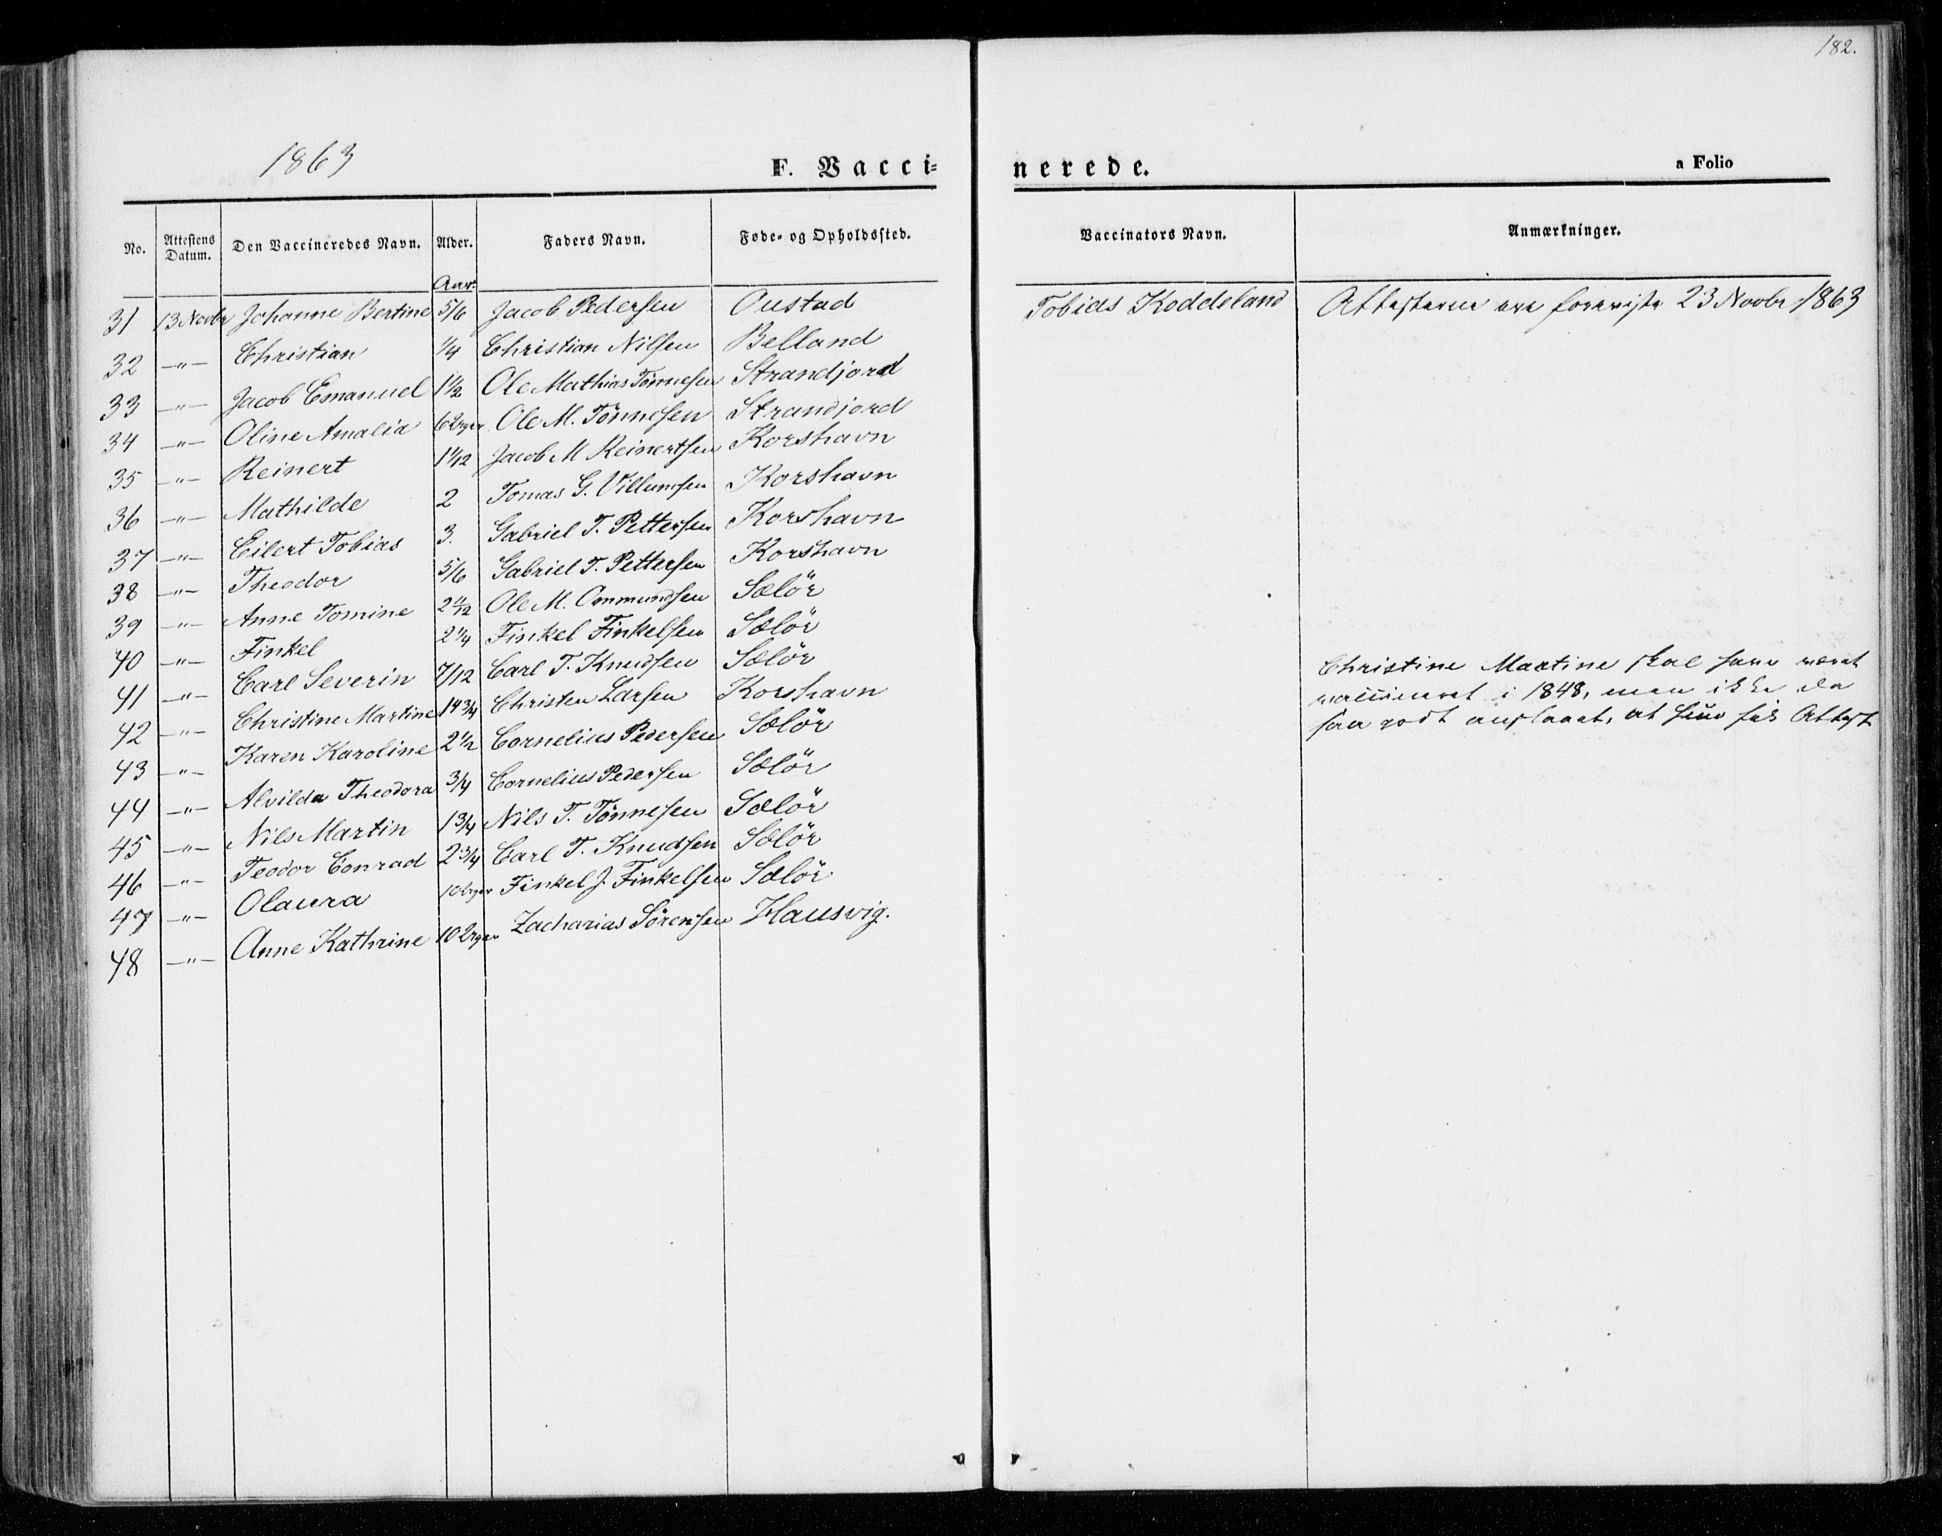 182.
1863
F. Vaccinerede.
a Folio
No. Attestens Datum. Den Vaccineredes Navn. Alder. Faders Navn. Føde- og Opholdssted. Vaccinators Navn. Anmærkninger.
Aar:
31 13 Novbr Johanne Bertine 5/6 Jacob Pedersen Oustad Tobias Koddeland Attesterne ere foreviste 23 Novbr 1863
32 —"— Christian 1/4 Christian Nilsen Belland
33 —"— Jacob Emanuel 1 1/2 Ole Mathias Tönnesen Strandjord
34 —"— Oline Amalia 6 Uger Ole M. Tönnesen Strandjord
35 —"— Reinert 1 1/12 Jacob M Reinertsen Korshavn
36 —"— Mathilde 2 Tomas G. Villumsen Korshavn
37 —"— Eilert Tobias 3. Gabriel T. Pettersen Korshavn
38 —"— Theodor 5/6 Gabriel T. Pettersen Korshavn
39 —"— Anne Tomine 2 11/12 Ole M. Ommundsen Sælör
40 —"— Finkel 2 1/4 Finkel Finkelsen Sælör
41 —"— Carl Severin 7/12 Carl T. Knudsen Sælör
42 —"— Christine Martine 14 3/4 Christen Larsen Korshavn
Christine Martine skal have været
vaccineret i 1848, men ikke da
saa godt anslaaet, at hun fik Attest
43 —"— Karen Karoline 2 1/2 Cornelius Pedersen Sælör
44 —"— Alvilda Theodora 3/4 Cornelius Pedersen Sælör
45 —"— Nils Martin 1 3/4 Nils T. Tönnesen Sælör
46 —"— Teodor Conrad 2 3/4 Carl T. Knudsen Sælör
47 —"— Olaura 10 Uger Finkel J. Finkelsen Sælör
48 —"— Anne Kathrine 10 Uger Zacharias Sörensen Hausvig.